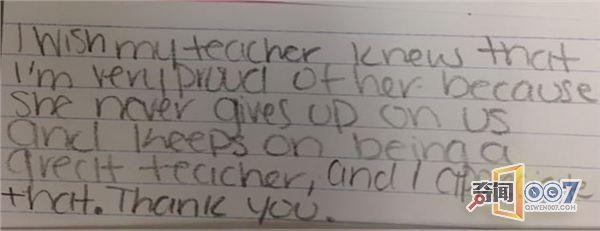 I wish my teacher knew that
I'm very proud of her because
she never gives up on us
and keeps on being a
great teacher, and I
that. Thank you.
奇闻007
QIWEN007.COM